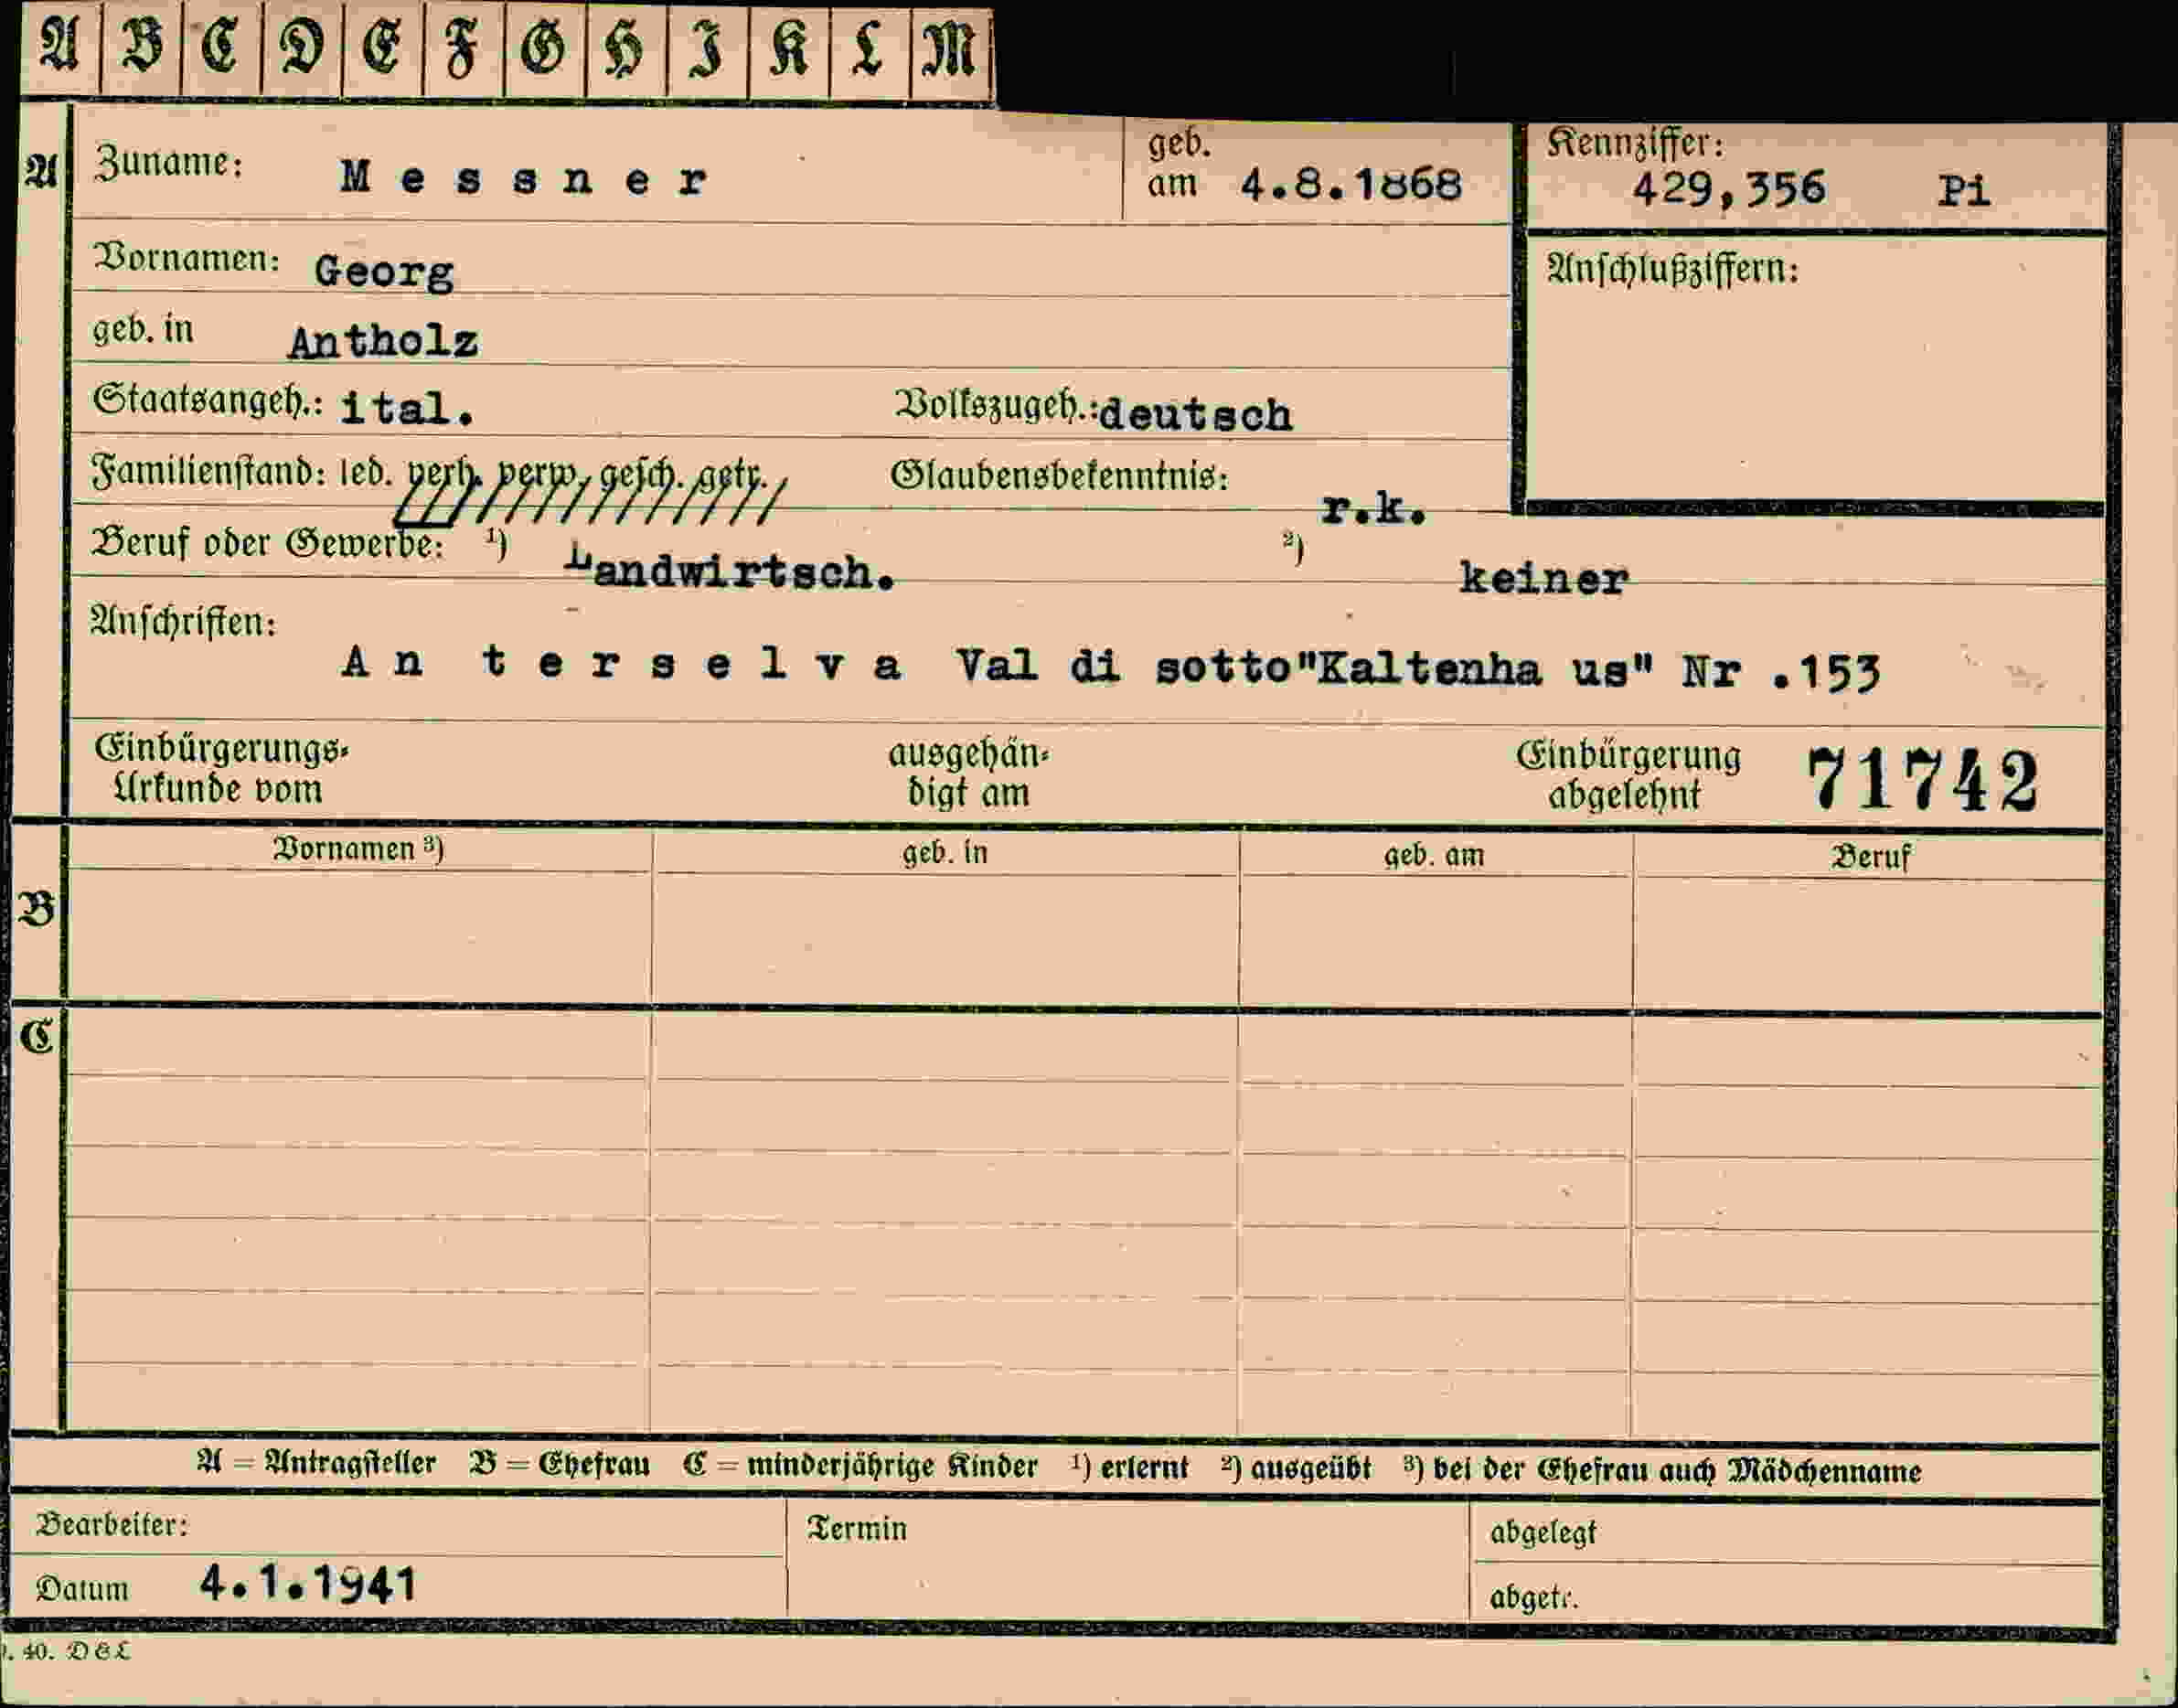 A B C D E F G H I K L M
A Zuname: Messner geb. am 4.8.1868 Kennziffer: 429,356 Pi
Vornamen: Georg Anschlußziffern:
geb. in Antholz
Staatsangeh.: ital. Volkszugeh.: deutsch
Familienstand: led. verh. verw. gesch. getr. Glaubensbekenntnis: r.k.
Beruf oder Gewerbe: 1) Landwirtsch. 2) keiner
Anschriften:
An terselva Val di sotto"Kaltenha us" Nr .153
Einbürgerungs- ausgehän- Einbürgerung 71742
Urkunde vom digt am abgelehnt
Vornamen 3) geb. in geb. am Beruf
B
C
A = Antragsteller B = Ehefrau C = minderjährige Kinder 1) erlernt 2) ausgeübt 3) bei der Ehefrau auch Mädchenname
Bearbeiter: Termin abgelegt
Datum 4.1.1941 abgetr.
40.